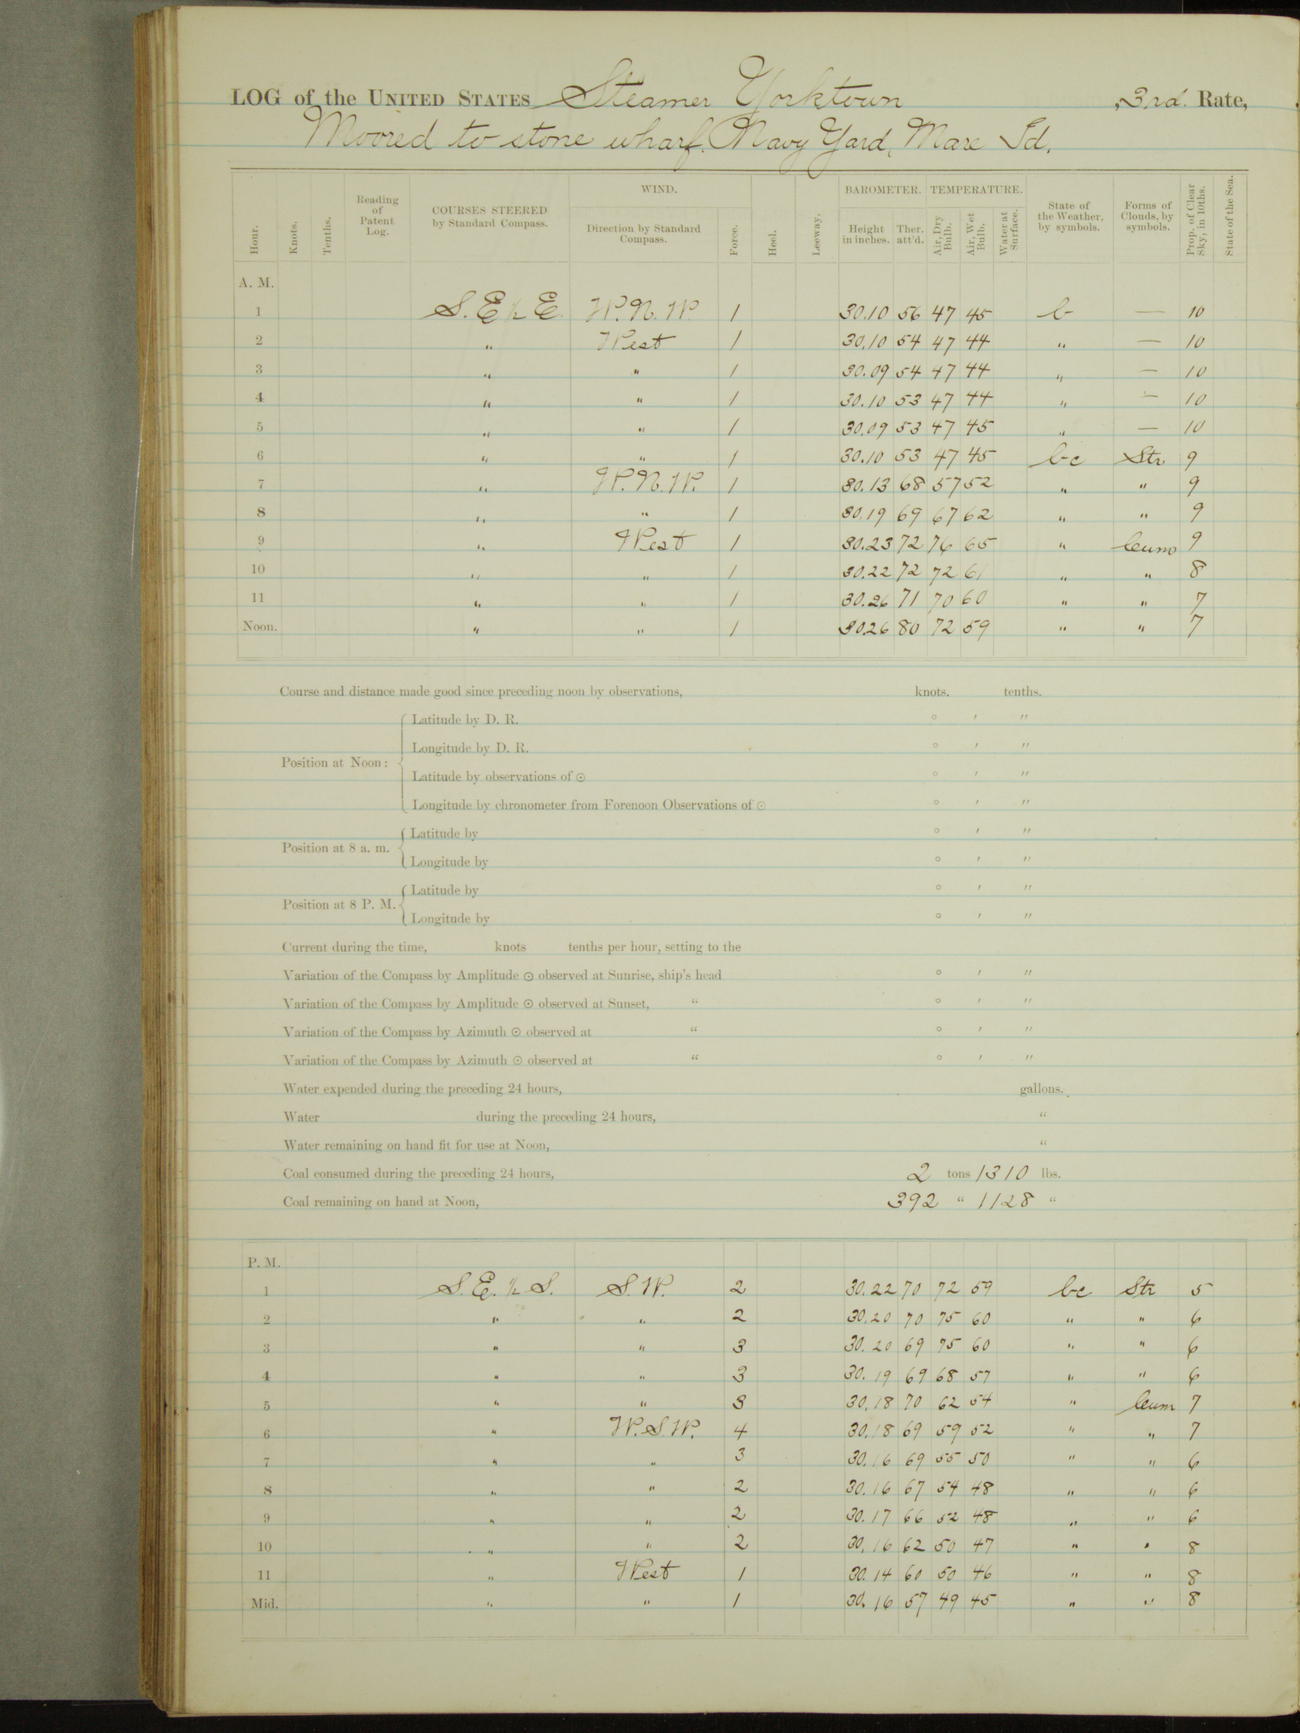 LOG of the UNITED STATES Steamer Yorktown, 3rd. Rate,
Moored to stone wharf. Navy Yard, Mare Id.
WIND. BAROMETER. TEMPERATURE.
Hour. Knots. Tenths. Reading of Patent Log. COURSES STEERED by Standard Compass. Direction by Standard Compass. Force. Heel. Leeway. Height in inches. Ther. att'd. Air, Dry Bulb. Air, Wet Bulb. Water at Surface. State of the Weather, by symbols. Forms of Clouds, by symbols. Prop. of Clear Sky, in 10ths. State of the Sea.
A. M.
1 S. E. ½ E. W. N. W. 1 30.10 56 47 45 b — 10
2 " West 1 30.10 54 47 44 " — 10
3 " " 1 30.09 54 47 44 " — 10
4 " " 1 30.10 53 47 44 " — 10
5 " " 1 30.09 53 47 45 " — 10
6 " " 1 30.10 53 47 45 bc Str. 9
7 " W. N. W. 1 30.13 68 57 52 " " 9
8 " " 1 30.19 69 67 62 " " 9
9 " West 1 30.23 72 76 65 " Cum 9
10 " " 1 30.22 72 72 61 " " 8
11 " " 1 30.26 71 70 60 " " 7
Noon. " " 1 30.26 80 72 59 " " 7
Course and distance made good since preceding noon by observations, knots. tenths.
Position at Noon:
Latitude by D. R. ° ′ ″
Longitude by D. R. ° ′ ″
Latitude by observations of ☉ ° ′ ″
Longitude by chronometer from Forenoon Observations of ☉ ° ′ ″
Position at 8 a. m.
Latitude by ° ′ ″
Longitude by ° ′ ″
Position at 8 P. M.
Latitude by ° ′ ″
Longitude by ° ′ ″
Current during the time, knots tenths per hour, setting to the
Variation of the Compass by Amplitude ☉ observed at Sunrise, ship's head ° ′ ″
Variation of the Compass by Amplitude ☉ observed at Sunset, " ° ′ ″
Variation of the Compass by Azimuth ☉ observed at " ° ′ ″
Variation of the Compass by Azimuth ☉ observed at " ° ′ ″
Water expended during the preceding 24 hours, gallons.
Water during the preceding 24 hours, "
Water remaining on hand fit for use at Noon, "
Coal consumed during the preceding 24 hours, 2 tons 1310 lbs.
Coal remaining on hand at Noon, 392 " 1128 "
P. M.
1 S. E. ½ S. S. W. 2 30.22 70 72 59 bc Str 5
2 " " 2 30.20 70 75 60 " " 6
3 " " 3 30.20 69 75 60 " " 6
4 " " 3 30.19 69 68 57 " " 6
5 " " 3 30.18 70 62 54 " Cum 7
6 " W. S. W. 4 30.18 69 59 52 " " 7
7 " " 3 30.16 69 55 50 " " 6
8 " " 2 30.16 67 54 48 " " 6
9 " " 2 30.17 66 52 48 " " 6
10 " " 2 30.16 62 50 47 " " 8
11 " West 1 30.14 60 50 46 " " 8
Mid. " " 1 30.16 57 49 45 " " 8